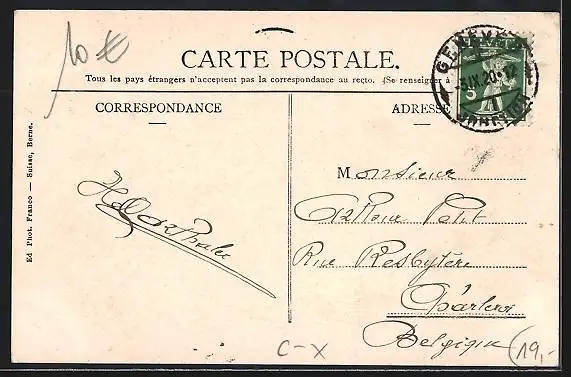 10 €
CARTE POSTALE.
Tous les pays étrangers n'acceptent pas la correspondance au recto. (Se renseigner
CORRESPONDANCE
ADRESSE
GENÈVE
HELVETIA
5
-5.IX.20.-12
1
JONCTION
Monsieur
Petit
Rue Presbytère
Charleroi
Belgique
Ed Phot. Franco — Suisse, Berne.
C-X
19,-